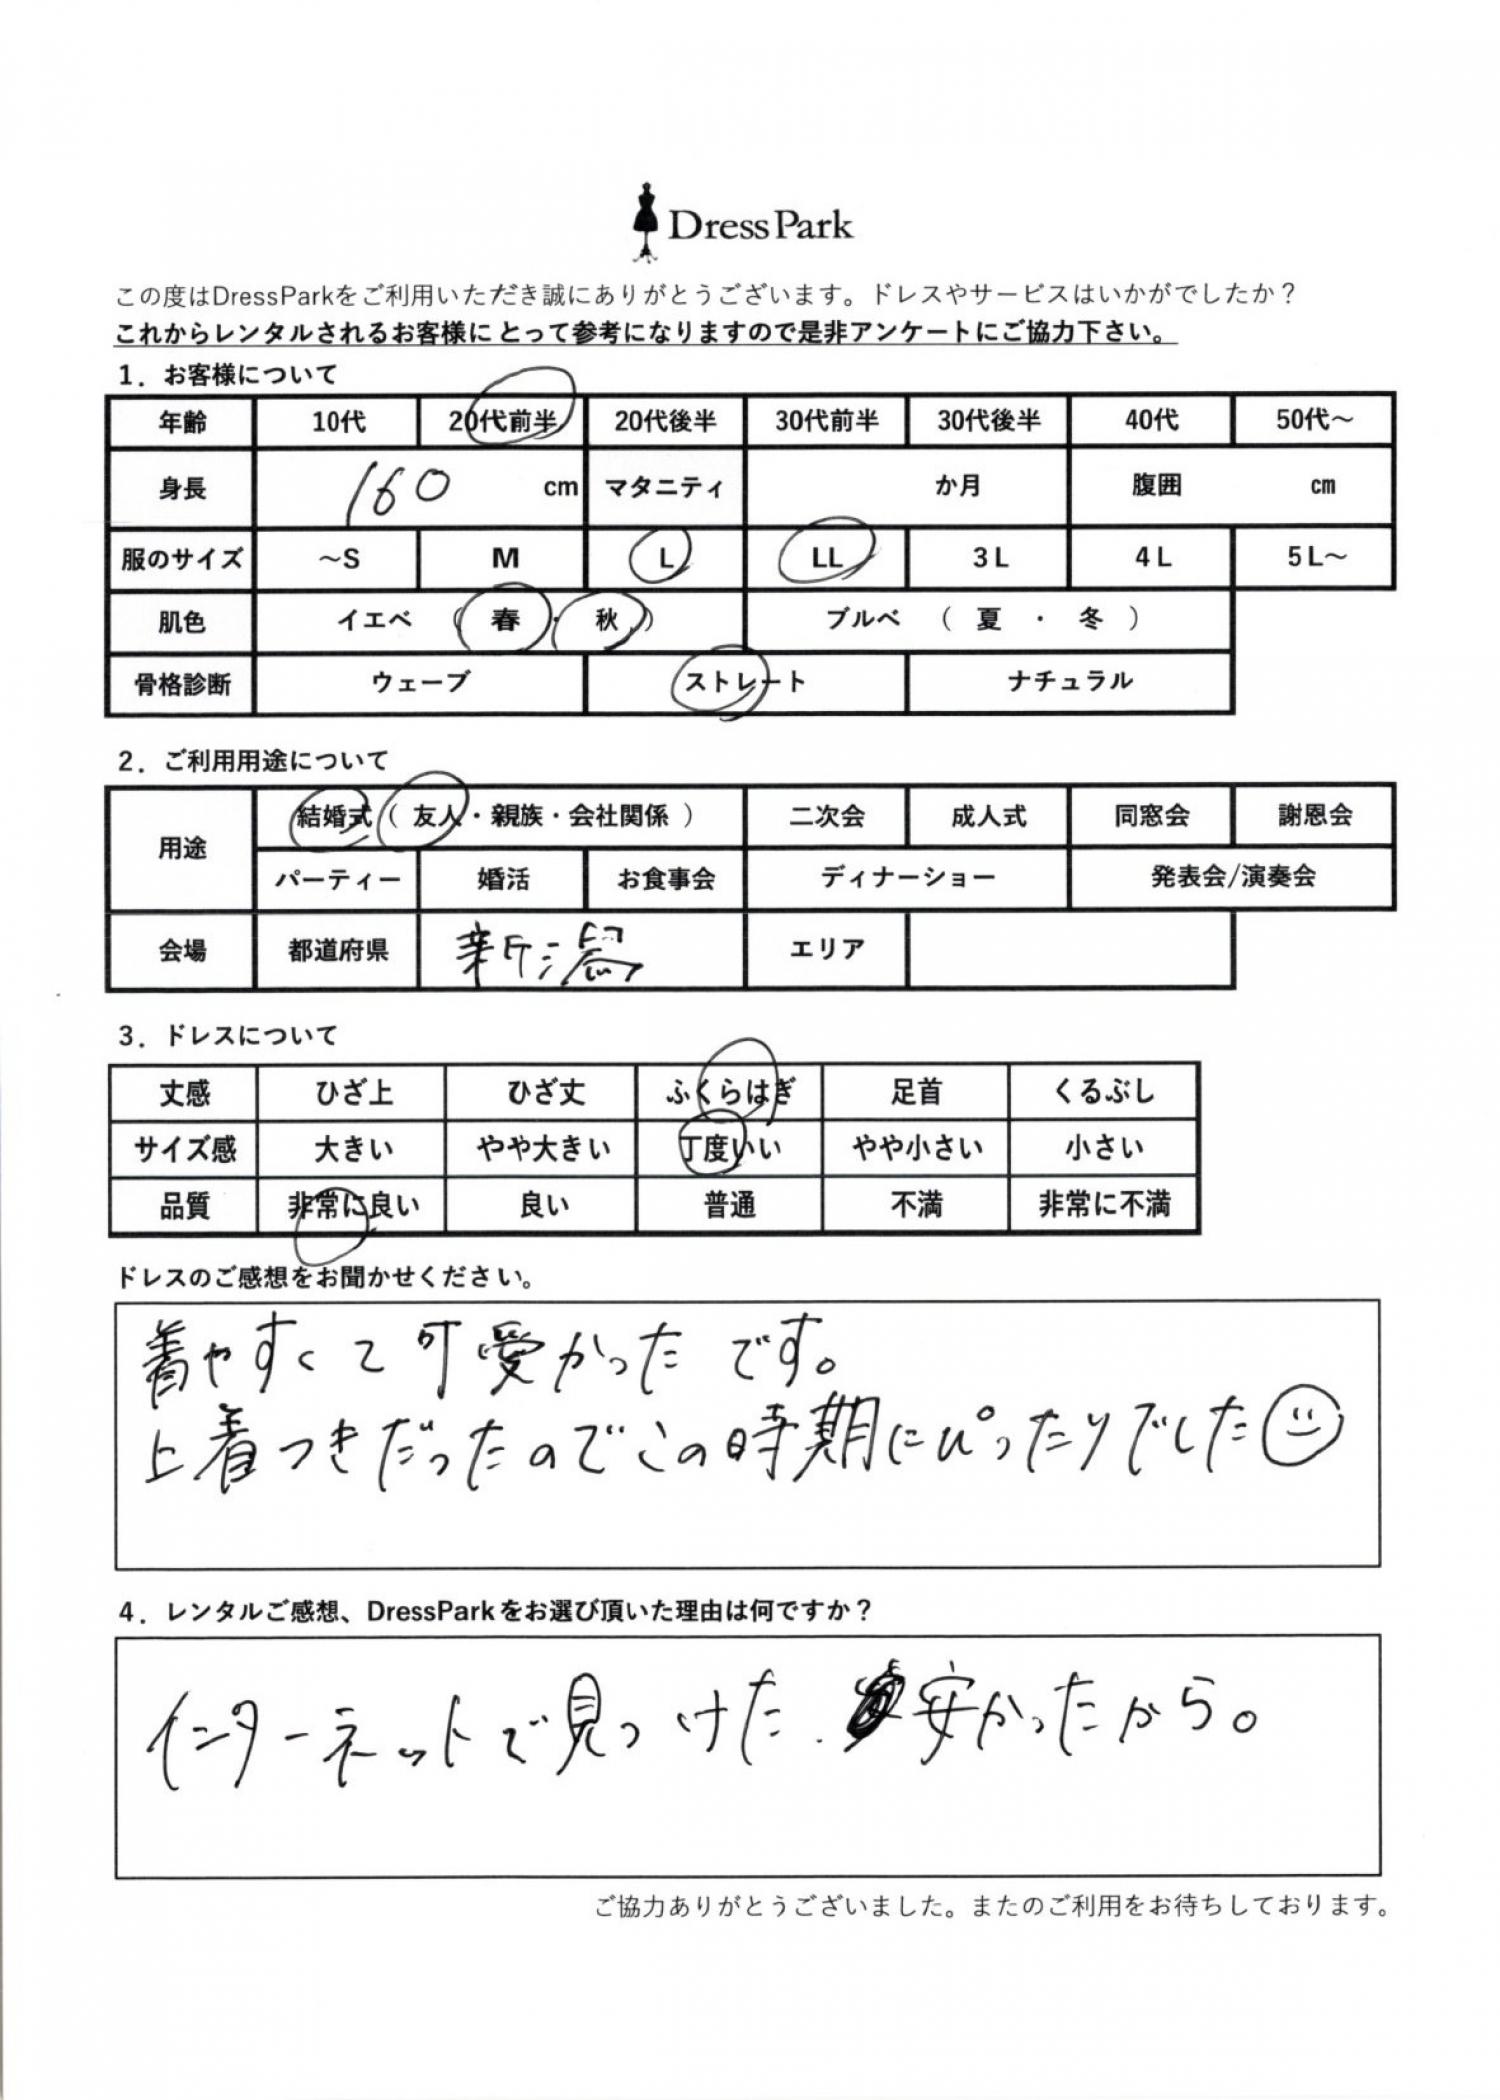 DressPark
この度はDressParkをご利用いただき誠にありがとうございます。ドレスやサービスはいかがでしたか？
これからレンタルされるお客様にとって参考になりますので是非アンケートにご協力下さい。
1．お客様について
年齢 10代 20代前半 20代後半 30代前半 30代後半 40代 50代～
身長 160 cm マタニティ か月 腹囲 cm
服のサイズ ～S M L LL 3L 4L 5L～
肌色 イエベ （ 春 ・ 秋 ） ブルベ （ 夏 ・ 冬 ）
骨格診断 ウェーブ ストレート ナチュラル
2．ご利用用途について
用途 結婚式（ 友人・親族・会社関係 ） 二次会 成人式 同窓会 謝恩会
パーティー 婚活 お食事会 ディナーショー 発表会/演奏会
会場 都道府県 新潟 エリア
3．ドレスについて
丈感 ひざ上 ひざ丈 ふくらはぎ 足首 くるぶし
サイズ感 大きい やや大きい 丁度いい やや小さい 小さい
品質 非常に良い 良い 普通 不満 非常に不満
ドレスのご感想をお聞かせください。
着やすくて可愛かったです。
上着つきだったのでこの時期にぴったりでした
4．レンタルご感想、DressParkをお選び頂いた理由は何ですか？
インターネットで見つけた．安かったから。
ご協力ありがとうございました。またのご利用をお待ちしております。